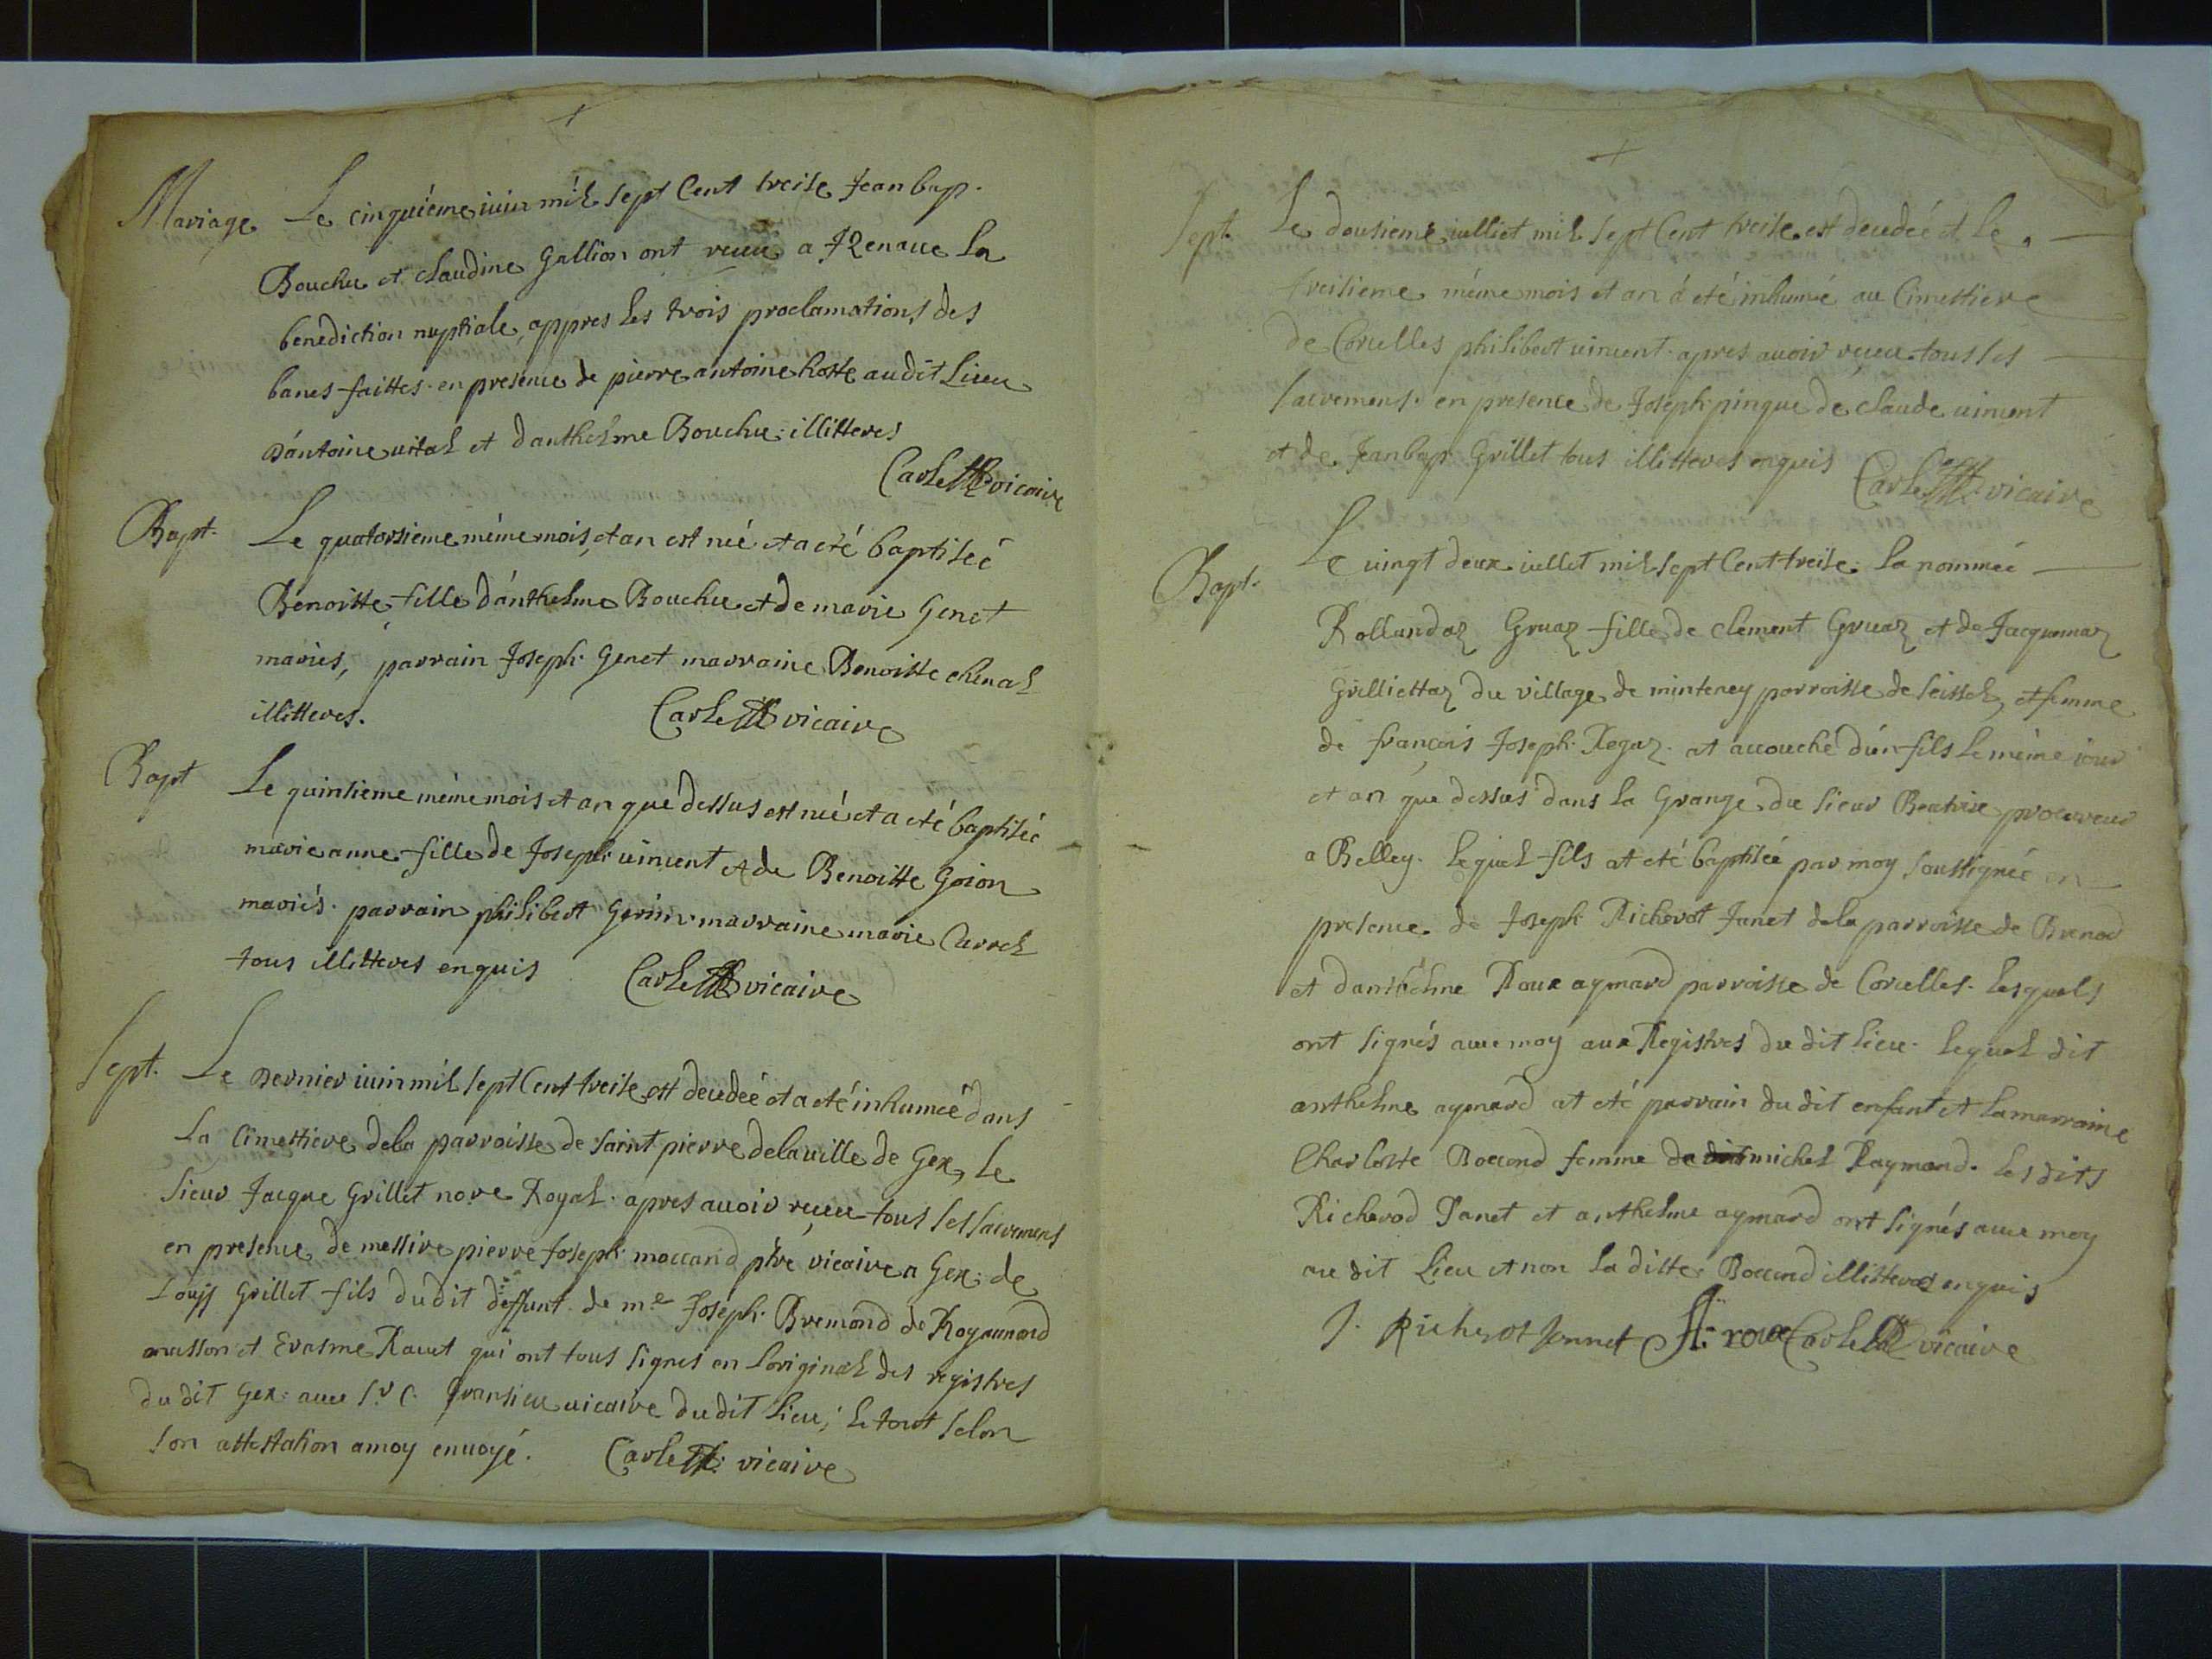 Mariage Le cinquiéme iuin mil sept Cent treise Jean bap.
Bouchu et claudine Gallion ont receu a La
benediction nuptiale, appres les trois proclamations des
bancs faittes en presence de pierre antoine hoste audit Lieu
D'antoine vital et danthelme Bouchu illitteres
Carle vicaire
Bapt. Le quatorsieme méme mois, et an est née et a eté baptiseé
Benoitte fille dánthelme Bouchu et de marie Genet
mariés, parrain Joseph Genet marraine Benoitte chenal
illitteres. Carle vicaire
Bapt Le quinsieme méme mois et an que dessus est née et a eté baptiseé
marie anne fille de Joseph uincent et de Benoitte Goion
mariés. parrain philibert Gerin marraine marie
tous illitteres enquis Carle vicaire
Sept. Le Dernier iuin mil sept Cent treise est decedeé et a eté inhumeé dans
La Cimettiere dela parroisse de saint pierre delauille de Gex, Le
sieur Jacque Grillet nore Royal. apres auoir receu tous ses sacremens
en presence de messire pierre Joseph moccand ptre vicaire a Gex: de
Louys Grillet fils dudit deffunt de me Joseph Bremond de Raymond
masson et Erasme qui ont tous signes en Loriginal des registres
du dit Gex: auec Sr C. uicaire du dit Lieu; le tout selon
son attestation amoy enuoyé. Carle vicaire
Sept. Le dousieme iulliet mil sept Cent treise est decedeé et le
treisieme méme mois et an á eté inhumé au Cimettiere
de Corcelles philibert uincent. apres auoir receu tous ses
sacremens. en presence de Joseph pingue de claude uincent
et de Jean bap Grillet tous illitteres enquis Carle vicaire
Bapt. Le uingt deux iullet mil sept Cent treise La nommeé
Rollandaz Gruaz fille de clement Gruaz et de Jacquemaz
Grilliettaz du village de minteney parroisse de seissel, et femme
de françois Joseph Regaz. at accouché d'un fils le méme iour
et an que dessus dans la Grange du sieur Beatrix procureur
a Belley. lequel fils at eté baptiseé par moy soussigneé en
presence de Joseph Richerot Janet dela parroisse de Brenod
et danthelme Roux aymard parroisse de Corcelles. lesquels
ont signés auec moy aux Registres du dit lieu. lequel dit
anthelme aymard at eté parrain du dit enfant et la marraine
Charlotte Boccond femme de michel Raymond. lesdits
Richerod Janet et anthelme aymard ont signés auec moy
au dit Lieu et non la ditte Boccond illitteres enquis
J. Richerot Jannet A. roux Carle vicaire